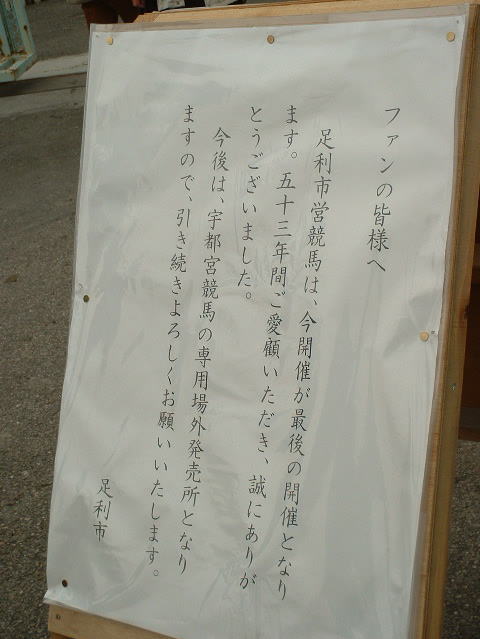 ファンの皆様へ
足利市営競馬は、今開催が最後の開催となり
ます。五十三年間ご愛顧いただき、誠にありが
とうございました。
今後は、宇都宮競馬の専用場外発売所となり
ますので、引き続きよろしくお願いいたします。
足利市